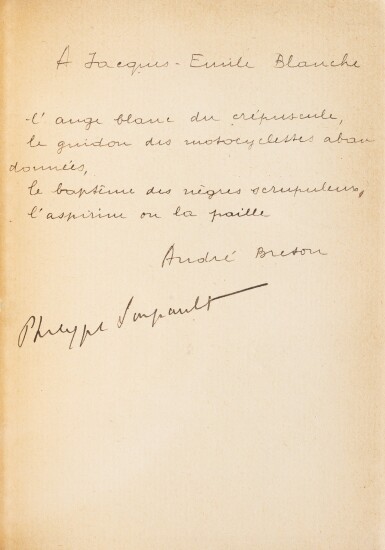 A Jacques-Emile Blanche
l'ange blanc du crépuscule,
le guidon des motocyclettes aban
données,
le baptême des nègres scrupuleux,
l'aspirine ou la paille
André Breton
Philippe Soupault